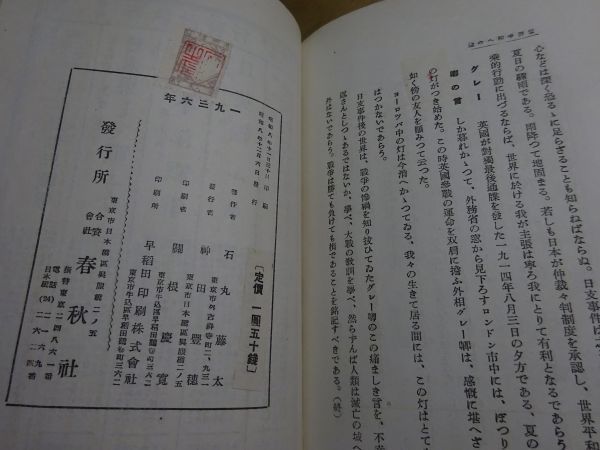 心などは深く恐るゝに足らざることも知らねばならぬ。日支事件は
夏日の驟雨である。雨降つて地固まる。若しも日本が仲裁々判制度を承認し、世界平和
発的行動に出づるならば、世界に於ける我が主張は寧ろ我にとりて有利となるであらう
グレー
卿の言
英國が對獨最後通牒を發した一九一四年八月三日の夕方である、夏の
しか暮れかゝつて、外務省の窓から見下ろすロンドン市中には、ぽつり
の灯がつき始めた。この時英國參戰の運命を双肩に擔ふ外相グレー卿は、感慨に堪へざ
如く傍の友人を顧みつて云つた。
ヨーロツパ中の灯は今消へかゝつてゐる、我々の生きて居る間には、この灯はとて
ばつかないであらう。
日支事件後の世界は、戰爭の慘禍を知り抜ひてゐたグレー卿のこの痛ましき言を、不幸
返さんとしつゝあるではないか、夢へ、大戰の教訓を夢へ、然らずんば人類は滅亡の域へ
外はないであらう。戰爭は勝ても負けても損であることを銘記すべきである。（終）
一九三六年
昭和八年十二月三十日 印刷
發行
〔定價 一圓五十錢〕
著作者 石丸藤太
東京市外吉祥寺町二、九三二
發行者 神田豐穗
東京市日本橋區呉服橋二ノ五
印刷者 關根慶寛
東京市牛込區早稻田鶴卷町三六二
印刷所 早稻田印刷株式會社
東京市牛込區早稻田鶴卷町三六二
發行所
東京市日本橋區呉服橋二ノ五
合資會社 春秋社
振替東京二四八六一番
電話日本橋(24)